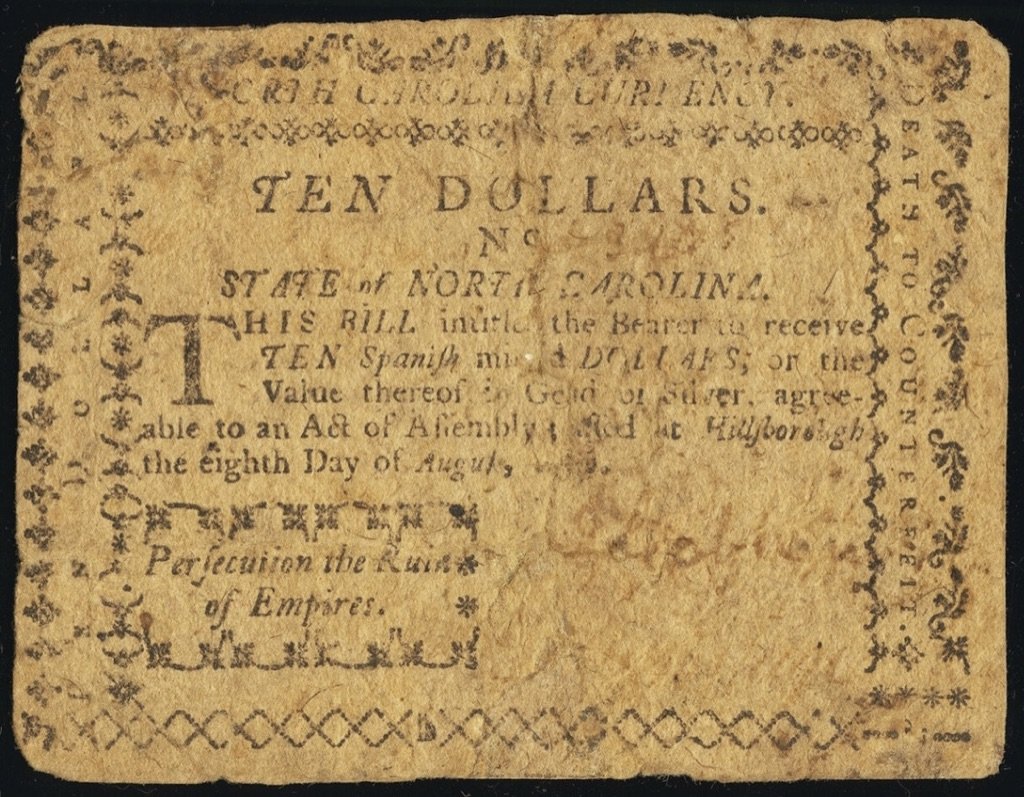 NORTH CAROLINA CURRENCY.
TEN DOLLARS.
No
STATE of NORTH-CAROLINA.
THIS BILL intitles the Bearer to receive
TEN Spaniſh mill'd DOLLARS, or the
Value thereof in Gold or Silver, agree-
able to an Act of Aſſembly paſſed at Hillſborough
the eighth Day of Auguſt,
Perſecution the Ruin
of Empires.
DEATH TO COUNTERFEIT.
TEN DOLLARS